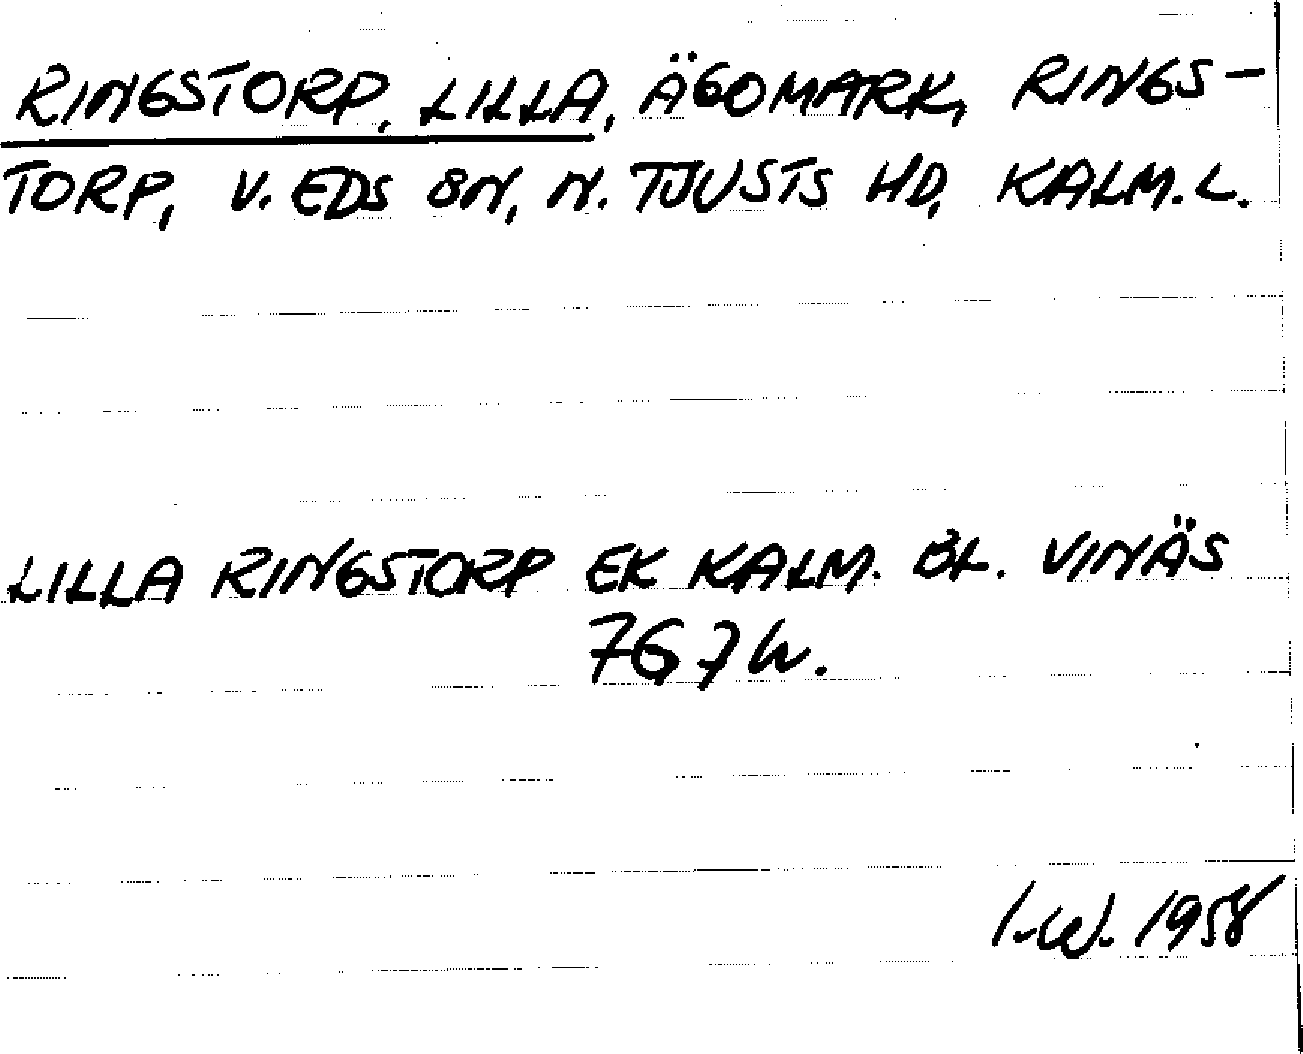 RINGSTORP, LILLA, ÄGOMARK, RINGS-
TORP, V. EDS SN, N. TJUSTS HD, KALM. L.
LILLA RINGSTORP EK KALM. BL. VINÄS
767 W.
I.W. 1958